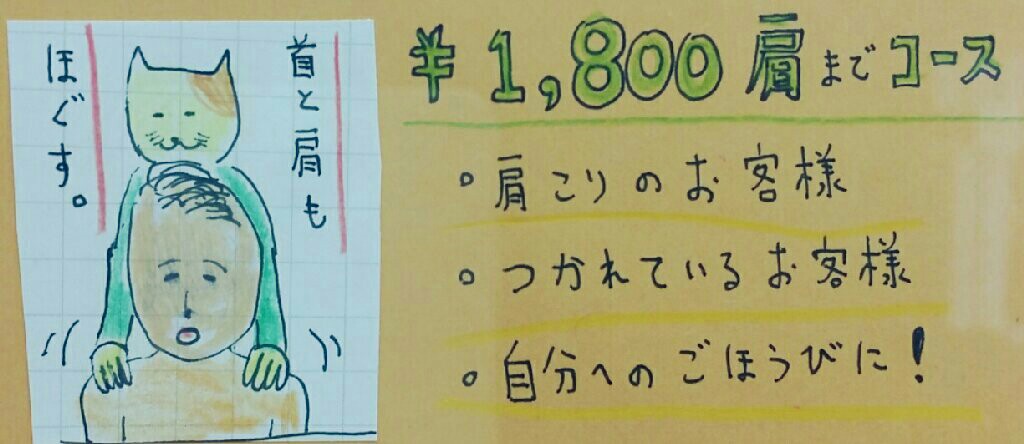 首と肩も
ほぐす。
¥1,800 肩までコース
。肩こりのお客様
。つかれているお客様
。自分へのごほうびに!